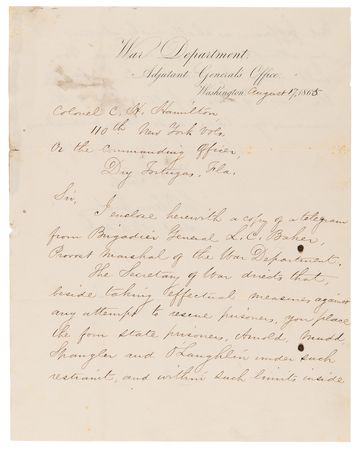 War Department,
Adjutant General's Office,
Washington, August 17, 1865
Colonel C. H. Hamilton
110th New York Vols
Or the Commanding Officer,
Dry Tortugas, Fla.
Sir,
I enclose herewith a copy of a telegram
from Brigadier General L. C. Baker,
Provost Marshal of the War Department.
The Secretary of War directs that,
beside taking effectual measures against
any attempt to rescue prisoners, you place
the four state prisoners, Arnold, Mudd,
Spangler and O'Laughlin under such
restraint, and within such limits inside